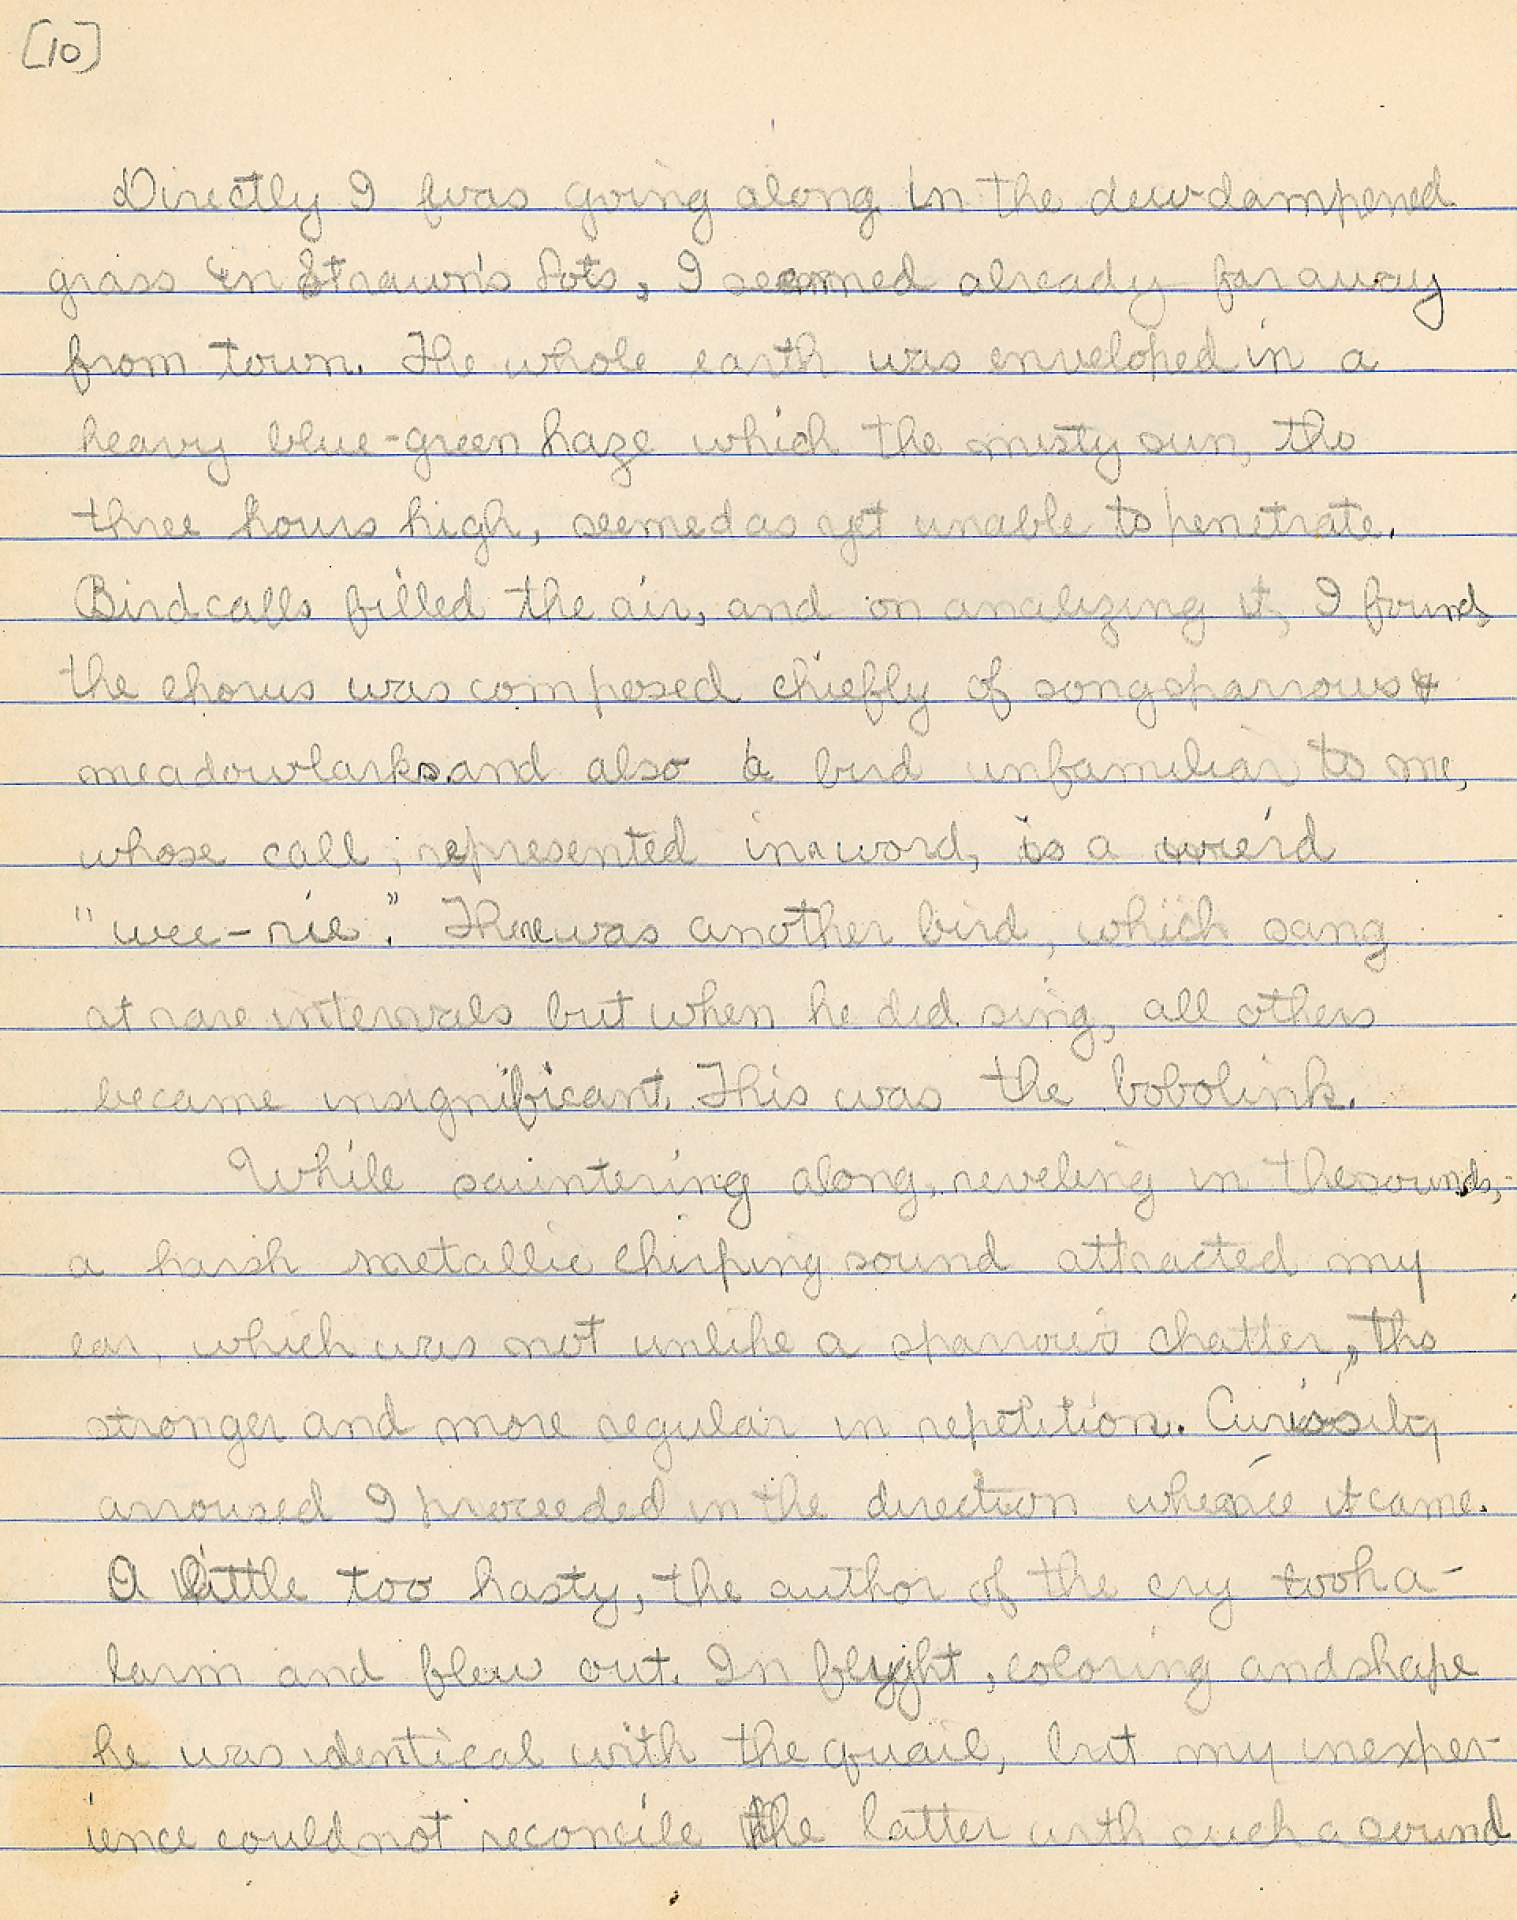 [10]
Directly I was going along in the dew-dampened
grass in Strawn's Lots, I seemed already far away
from town. The whole earth was enveloped in a
heavy blue-green haze which the misty sun, tho
three hours high, seemed as yet unable to penetrate.
Birdcalls filled the air, and on analizing it, I found
the chorus was composed chiefly of songsparrows &
meadowlarks and also a bird unfamiliar to me,
whose call, represented in word, is a weird
"wee-rie". There was another bird, which sang
at rare intervals but when he did sing, all others
became insignificant. This was the bobolink.
While sauntering along, reveling in the sounds,-
a harsh metallic chirping sound attracted my
ear, which was not unlike a sparrow's chatter, tho
stronger and more regular in repetition. Curiosity
arroused I proceeded in the direction whence it came.
A little too hasty, the author of the cry took a-
larm and flew out. In flyght, coloring and shape
he was identical with the quail, but my inexper-
ience could not reconcile the latter with such a sound